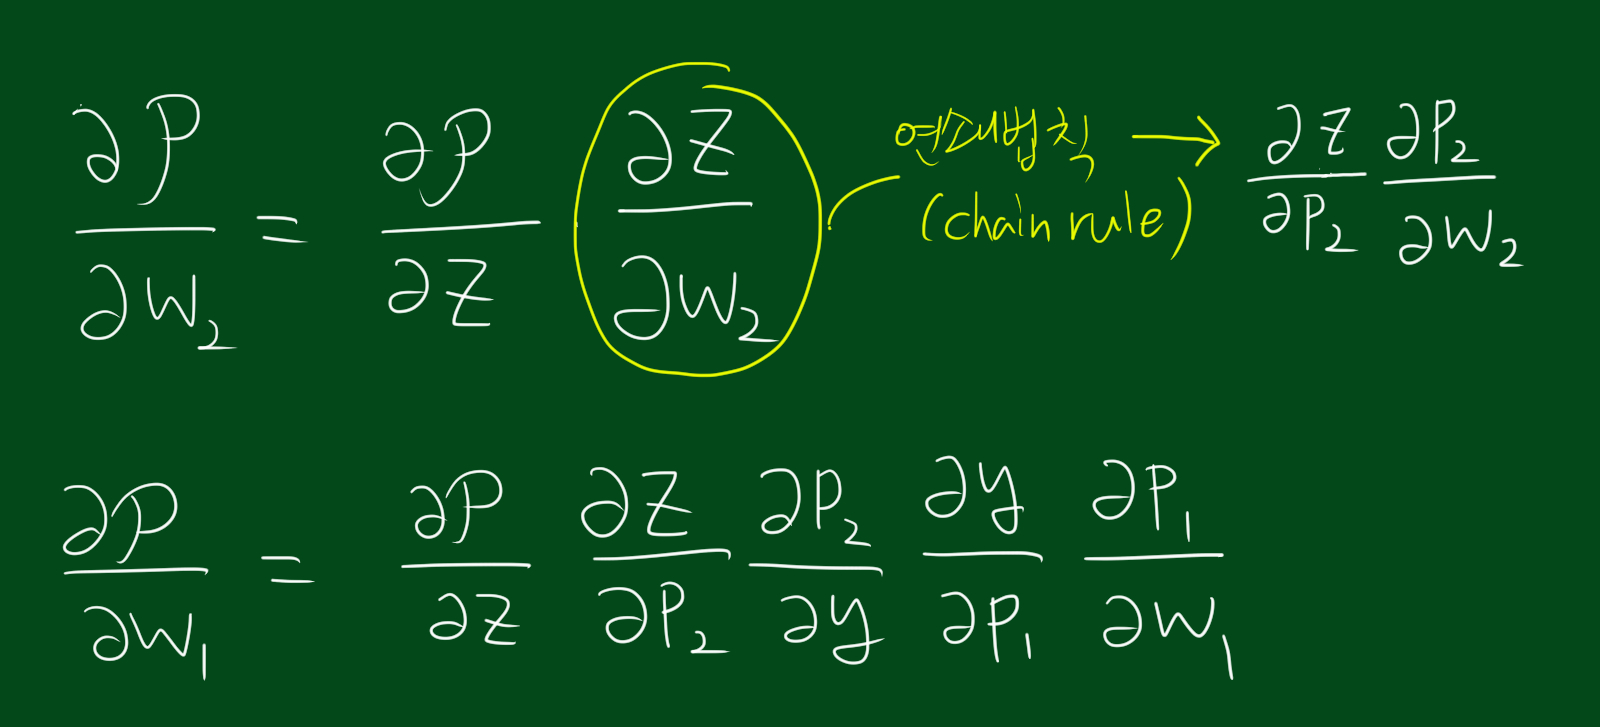 ∂P/∂W₂ = ∂P/∂Z ∂Z/∂W₂ 연쇄법칙 (chain rule) → ∂Z/∂P₂ ∂P₂/∂W₂
∂P/∂W₁ = ∂P/∂Z ∂Z/∂P₂ ∂P₂/∂y ∂y/∂P₁ ∂P₁/∂W₁